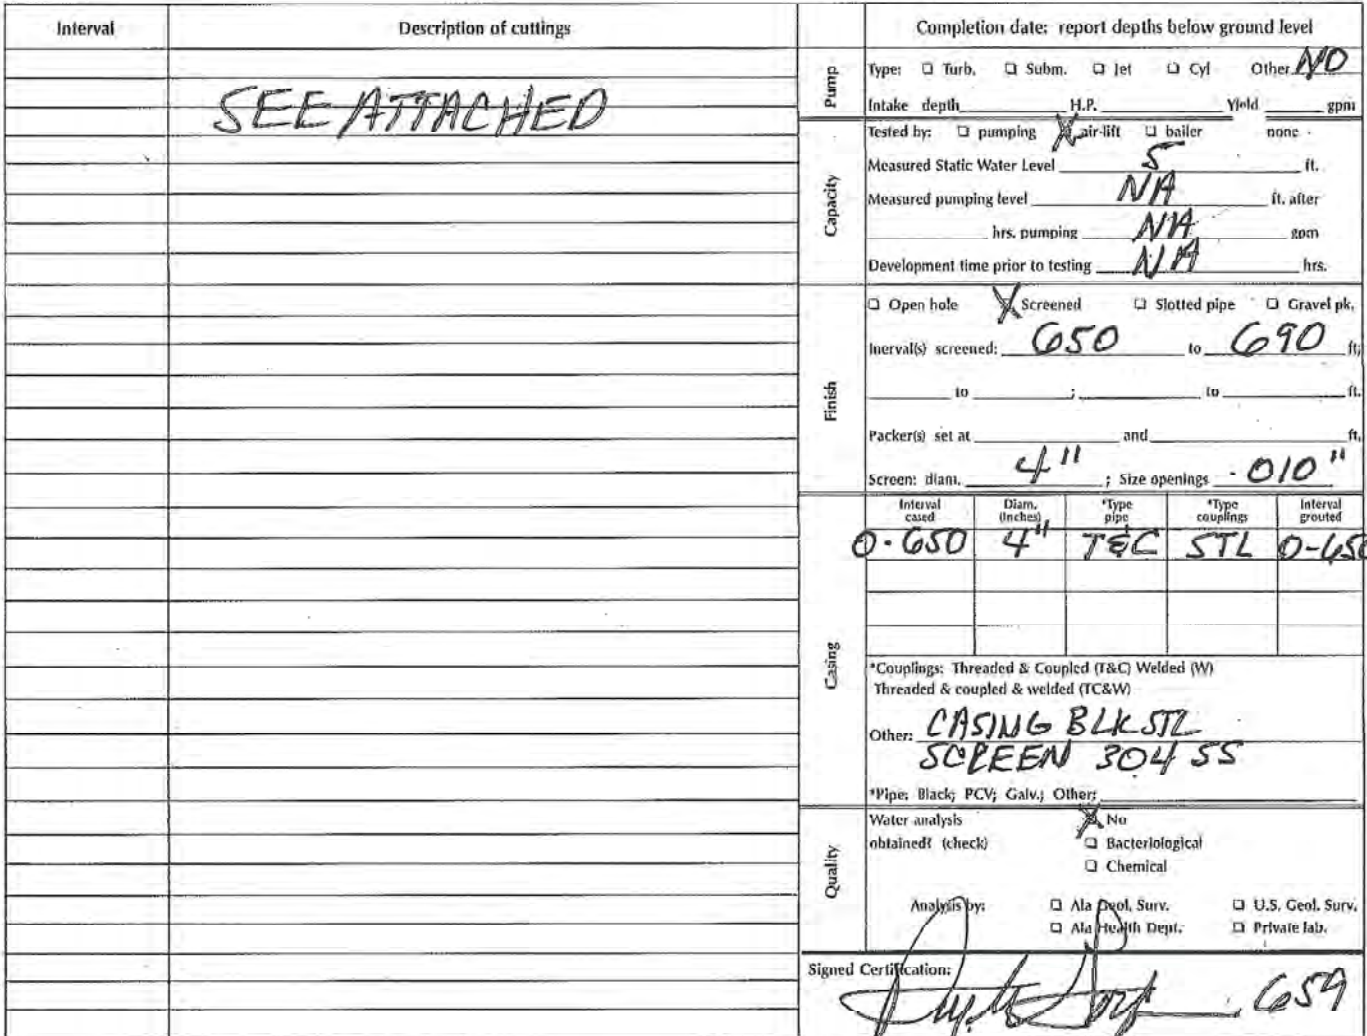 Interval Description of cuttings
SEE ATTACHED
Completion date: report depths below ground level
Pump
Type: ☐ Turb. ☐ Subm. ☐ Jet ☐ Cyl Other NO
Intake depth H.P. Yield gpm
Capacity
Tested by: ☐ pumping ☒ air-lift ☐ bailer none
Measured Static Water Level 5 ft.
Measured pumping level NA ft. after
hrs. pumping NA gpm
Development time prior to testing NA hrs.
Finish
☐ Open hole ☒ Screened ☐ Slotted pipe ☐ Gravel pk.
Inerval(s) screened: 650 to 690 ft;
to ; to ft.
Packer(s) set at and ft.
Screen: diam. 4" ; Size openings .010"
Casing
Interval cased Diam. (Inches) *Type pipe *Type couplings Interval grouted
0-650 4" T&C STL 0-650
*Couplings: Threaded & Coupled (T&C) Welded (W)
Threaded & coupled & welded (TC&W)
Other: CASING BLK STL
SCREEN 304 SS
*Pipe: Black; PCV; Galv.; Other:
Quality
Water analysis ☒ No
obtained? (check) ☐ Bacteriological
☐ Chemical
Analysis by: ☐ Ala Geol. Surv. ☐ U.S. Geol. Surv.
☐ Ala Health Dept. ☐ Private lab.
Signed Certification: 659